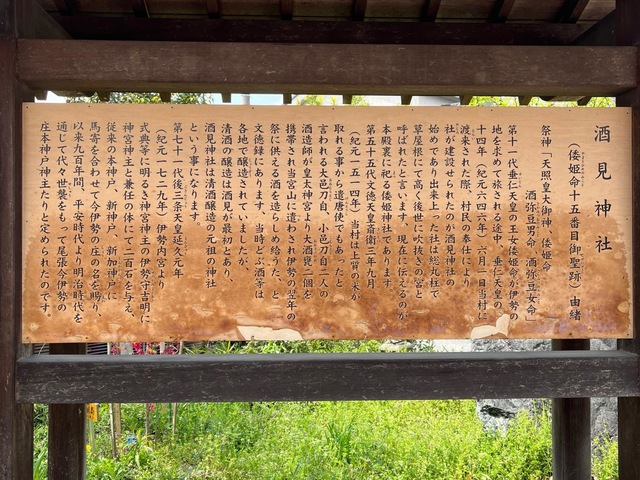 酒見神社
（倭姫命十五番目御聖跡）由緒
祭神「天照皇大御神、倭姫命
酒弥豆男命　酒弥豆女命」
第十一代垂仁天皇の王女倭姫命が伊勢の
地を求めて旅される途中、垂仁天皇の
十四年（紀元六四六年）六月一日当村に
渡来された際、村民の奉仕により
社が建設せられたのが酒見神社の
始めであり出来上った社は総丸柱で
草屋根にて高く後世に吹抜きの宮と
呼ばれたと言います。現在に伝えるのが
本殿裏に祀る倭姫神社であります。
第五十五代文徳天皇斎衡三年九月
（紀元一五一四年）当村は上質の米が
取れる事から遣唐使でもあったと
言われる大邑刀自、小邑刀自二人の
酒造師が皇太神宮より大酒甕二個を
携帯され当宮山に遣わされ伊勢の翌年の
祭に供える酒を造らしめ給うた、と
文徳録にあります。当時どぶ酒等は
各地で醸造されていましたが、
清酒の醸造は酒見が最初であり、
酒見神社は清酒醸造の元祖の神社
という事になります。
第七十一代後三条天皇延久元年
（紀元一七二九年）伊勢内宮より
式典等に明るき神宮神主の伊勢守吉明に
神宮神主と兼任の体にて二百石を与え、
従来の本神戸、新神戸、新加神戸に
馬寄を合わせて今伊勢の庄の名を賜り、
以来九百年間、平安時代より明治時代を
通じて代々世襲をもって尾張今伊勢の
庄本神戸神主たりと定められたのです。